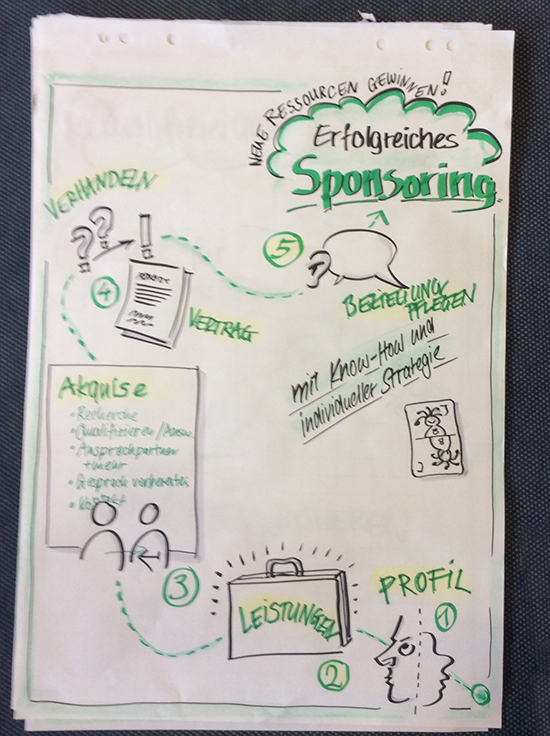 NEUE RESSOURCEN GEWINNEN!
Erfolgreiches
Sponsoring
VERHANDELN
?? !
5
4
VERTRAG
BEZIEHUNG
PFLEGEN
mit Know-How und
individueller Strategie
Akquise
• Recherche
• Qualifizieren /
• Ansprechpartner
+ mehr
• Gespräch vorbereiten
• Kontakt
3
LEISTUNGEN
2
PROFIL
1